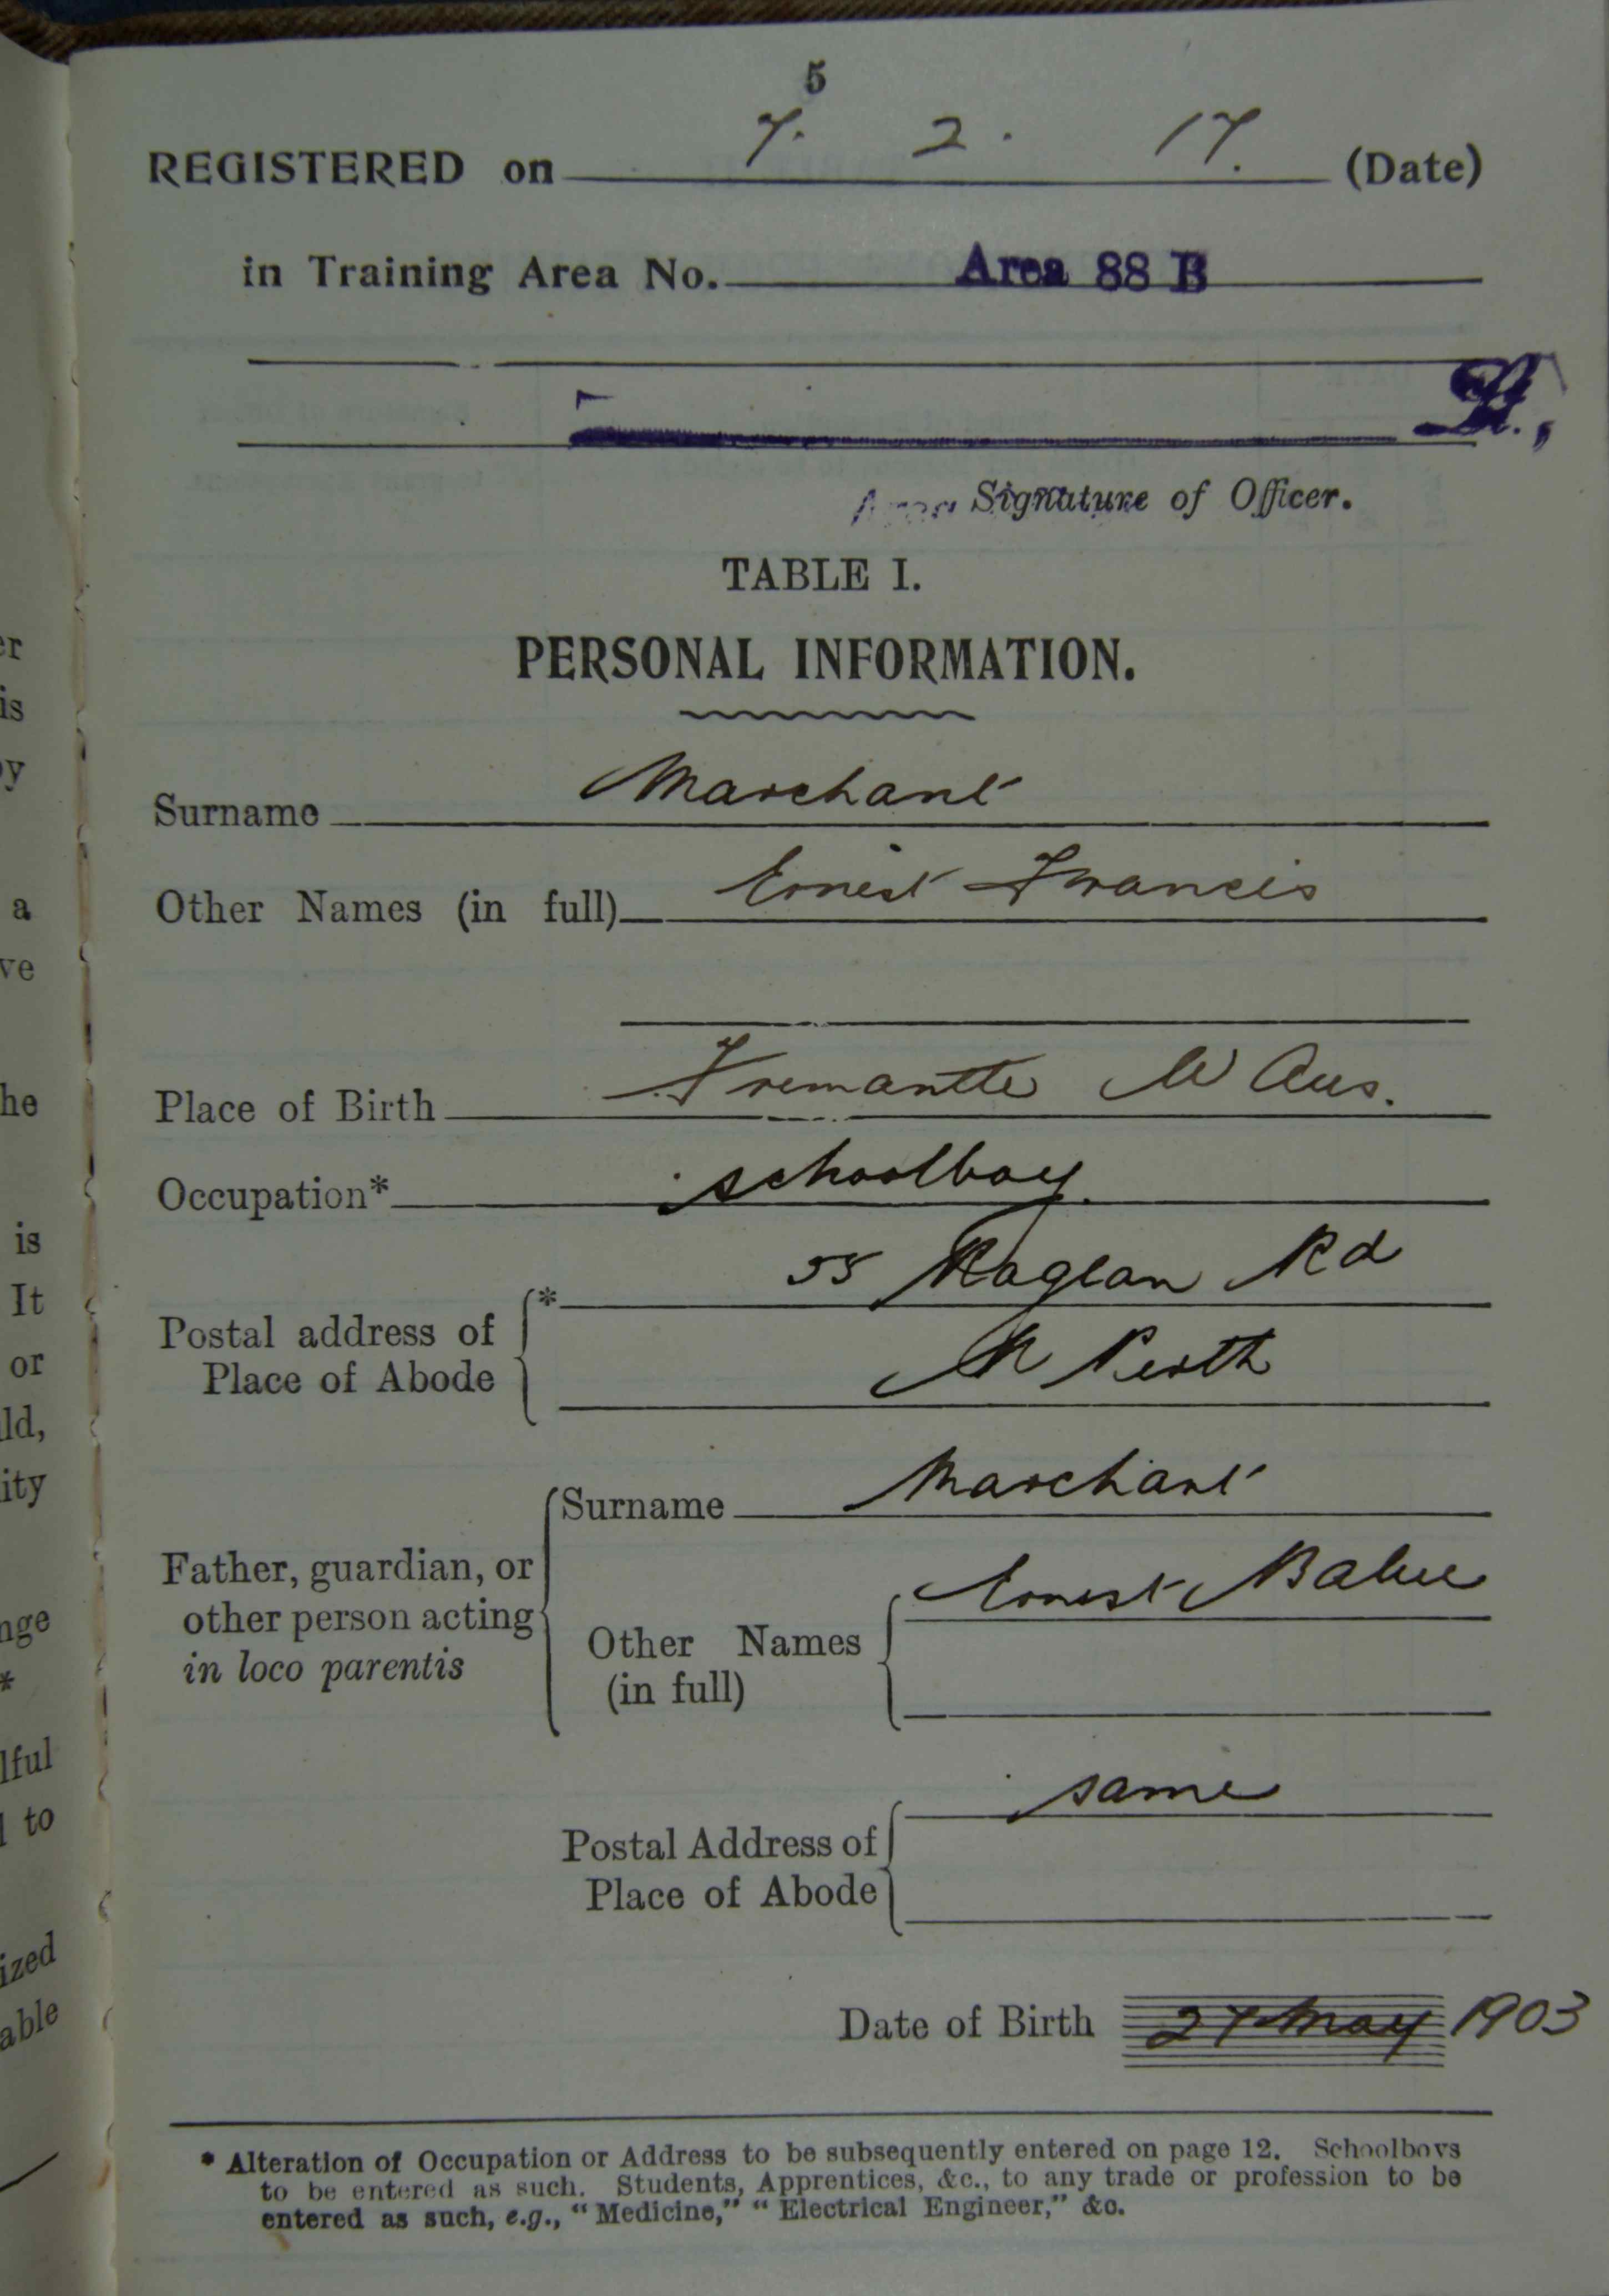 5
REGISTERED on 7. 2. 17. (Date)
in Training Area No. Area 88 B
Lt.,
Area Signature of Officer.
TABLE I.
PERSONAL INFORMATION.
Surname Marchant
Other Names (in full) Ernest Francis
Place of Birth Fremantle W Aus.
Occupation* schoolboy.
Postal address of Place of Abode * 55 Raglan Rd
N Perth
Father, guardian, or other person acting in loco parentis
Surname Marchant
Other Names (in full) Ernest
Postal Address of Place of Abode same
Date of Birth 27 May 1903
* Alteration of Occupation or Address to be subsequently entered on page 12. Schoolboys
to be entered as such. Students, Apprentices, &c., to any trade or profession to be
entered as such, e.g., “Medicine,” “Electrical Engineer,” &c.
er
is
by
a
ve
he
is
It
or
ld,
ity
nge
*
lful
to
ized
able